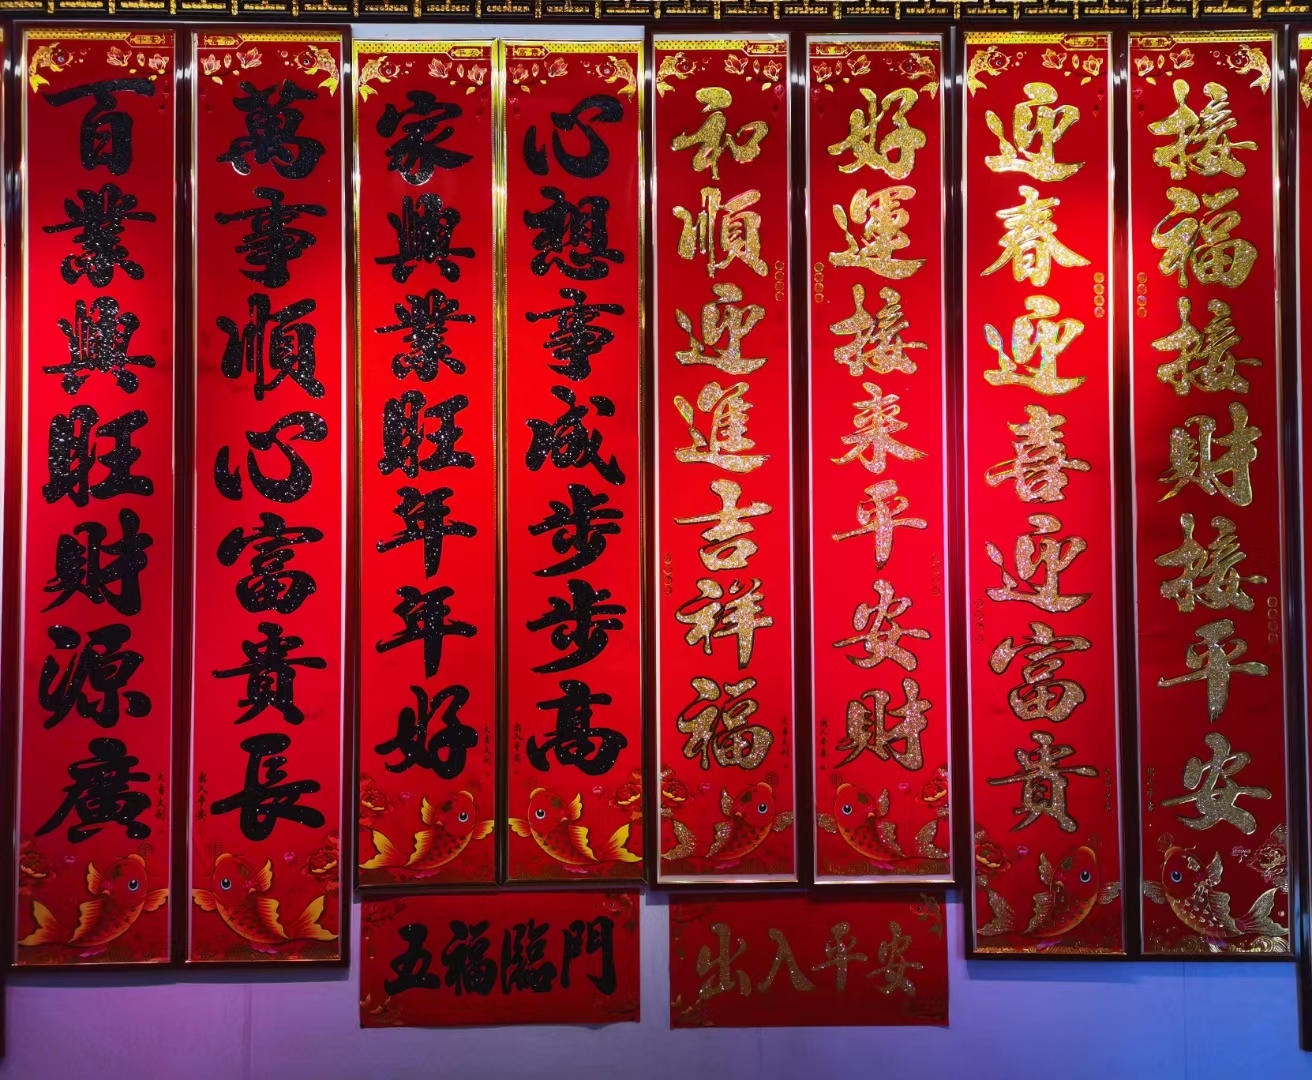 百業興旺財源廣
萬事順心富貴長
家興業旺年年好
心想事成步步高
和順迎進吉祥福
好運接来平安財
迎春迎喜迎富貴
接福接財接平安
五福臨門
出入平安